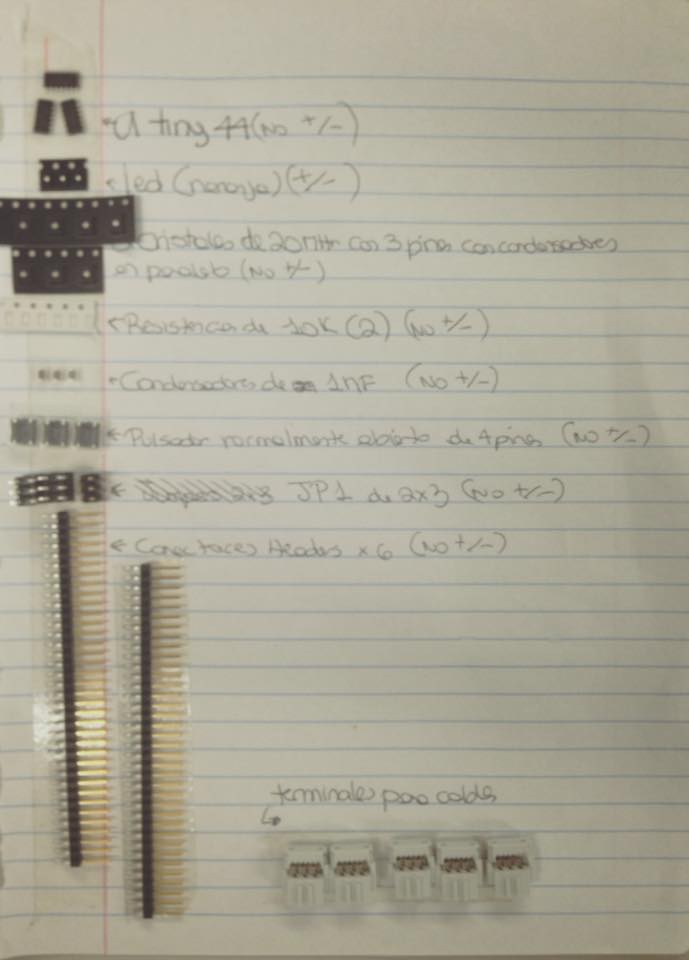 tiny 44 (No +/-)
← led (naranja) (+/-)
Cristales de 20MHz con 3 pines con condensadores
en paralelo (No +/-)
← Resistencias de 10K (2) (No +/-)
← Condensadores de 1nF (No +/-)
← Pulsador normalmente abierto de 4 pines (No +/-)
← JP1 de 2x3 (No +/-)
← Conectores Headers x 6 (No +/-)
terminales para cables